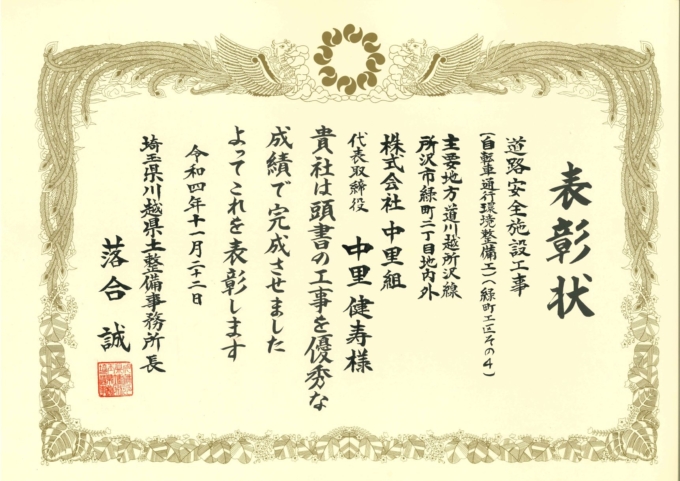 表彰状
道路安全施設工事
(自転車通行環境整備工)(緑町工区その4)
主要地方道川越所沢線
所沢市緑町二丁目地内外
株式会社 中里組
代表取締役 中里健寿様
貴社は頭書の工事を優秀な
成績で完成させました
よってこれを表彰します
令和四年十一月二十二日
埼玉県川越県土整備事務所長
落合 誠